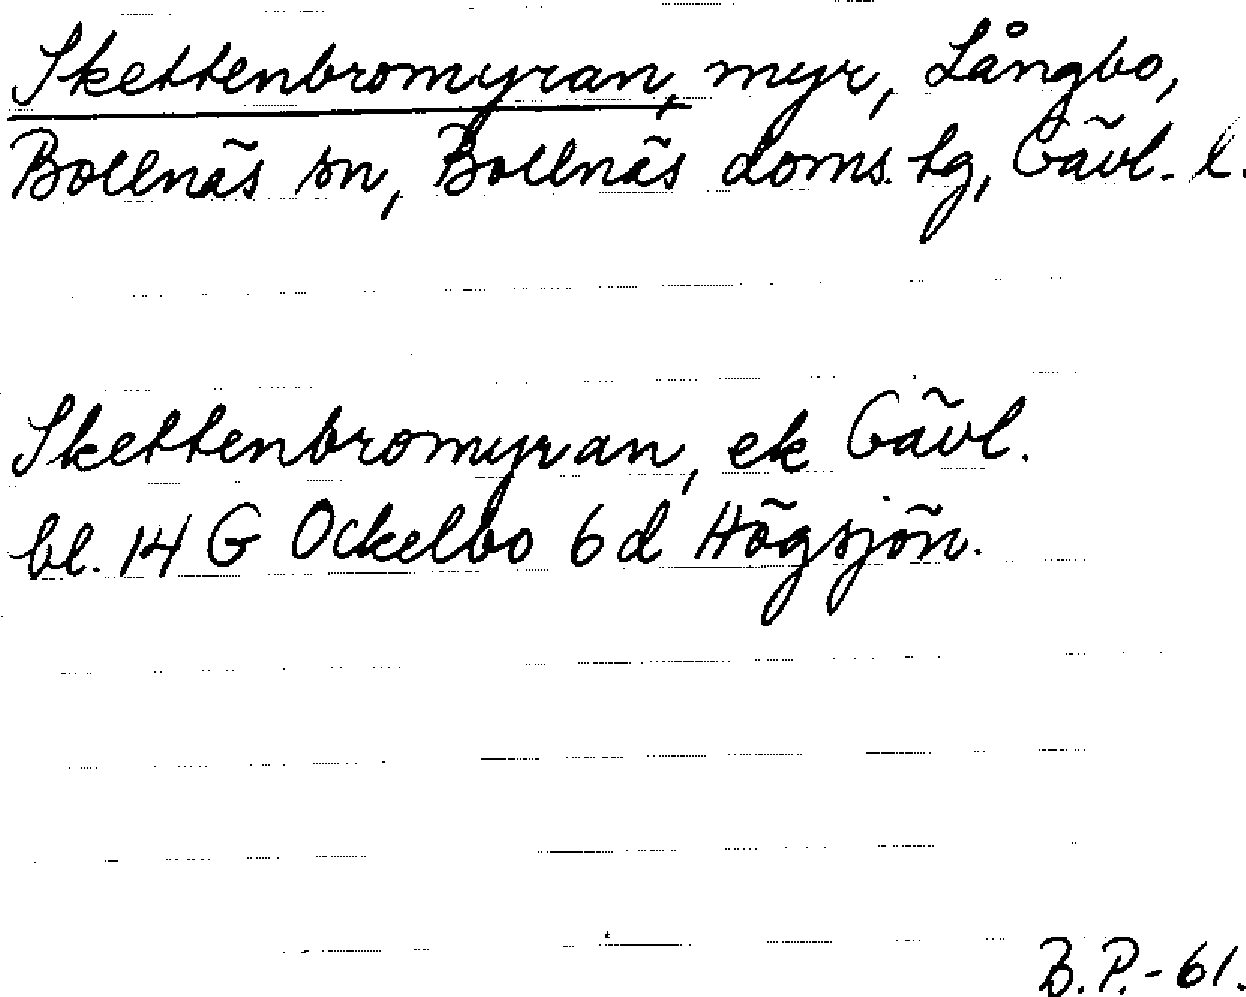 Skettenbromyran, myr, Långbo,
Bollnäs sn, Bollnäs doms. hg, Gävl. l.
Skettenbromyran, ek Gävl.
bl. 14 G Ockelbo 6 d Högsjön.
B.P.-61.